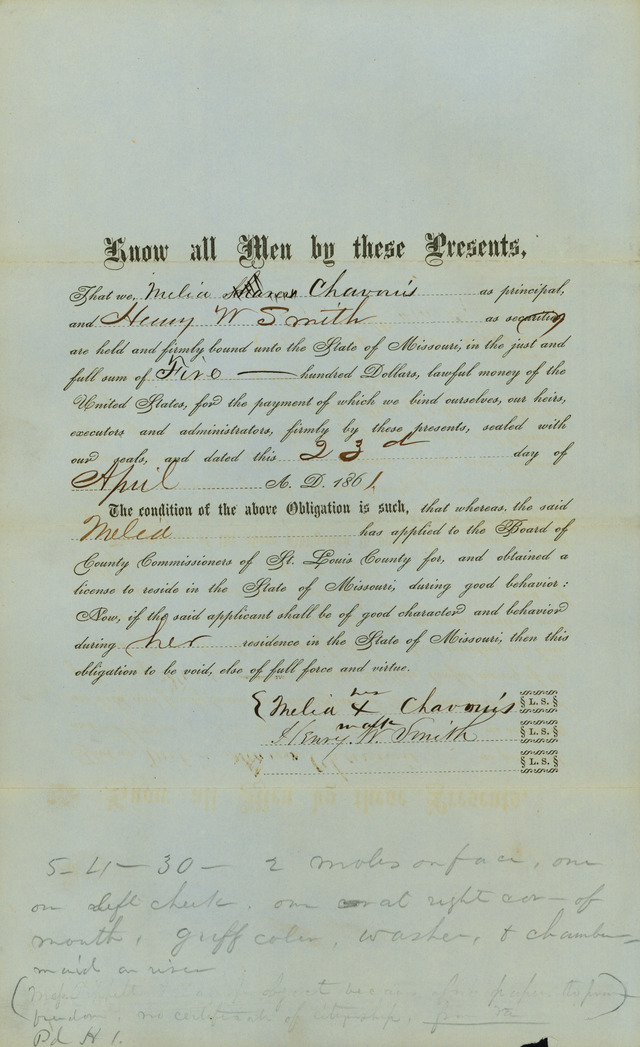 Know all Men by these Presents,
That we, Melia Chavouis as principal,
and Henry W Smith as securities,
are held and firmly bound unto the State of Missouri, in the just and
full sum of Five — hundred Dollars, lawful money of the
United States, for the payment of which we bind ourselves, our heirs,
executors and administrators, firmly by these presents, sealed with
our seals, and dated this 23d day of
April A. D. 1861
The condition of the above Obligation is such, that whereas, the said
Melia has applied to the Board of
County Commissioners of St. Louis County for, and obtained a
license to reside in the State of Missouri, during good behavior:
Now, if the said applicant shall be of good character and behavior
during her residence in the State of Missouri, then this
obligation to be void, else of full force and virtue.
her
Melia X Chavouis L. S.
mark
Henry. W. Smith L. S.
L. S.
5-4-30- 2 moles on face, one
on left cheek. one at right cor- of
mouth, griff color, washer, & chamber
maid on river
free papers
freedom. no certificate of citizenship.
Pd H 1.